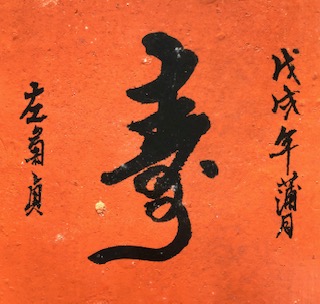 戊戌年蒲月
壽
左菊貞